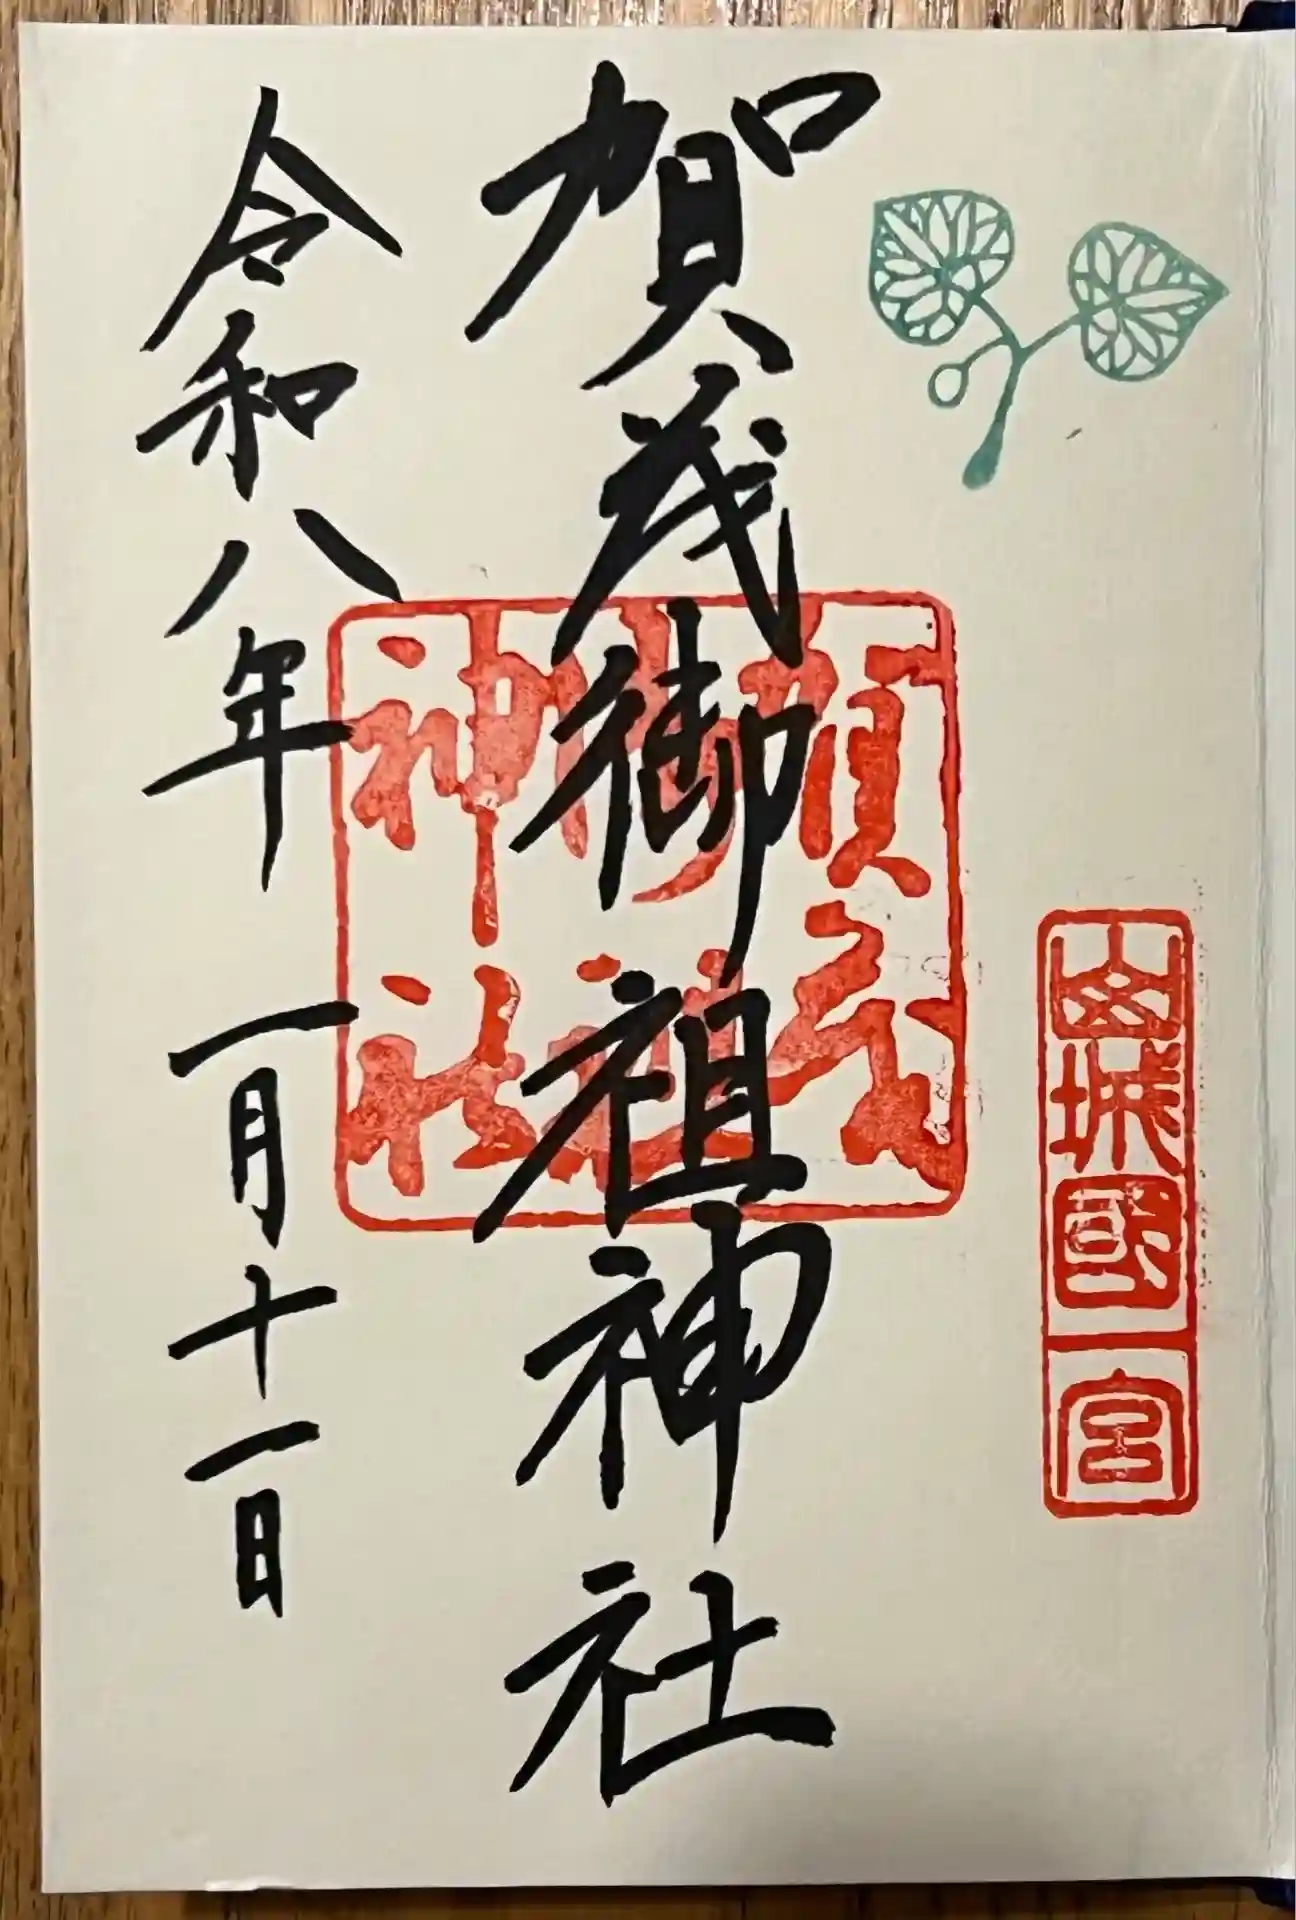 山城國一宮
賀茂御祖神社
賀茂
御祖
神社
令和八年 一月十一日